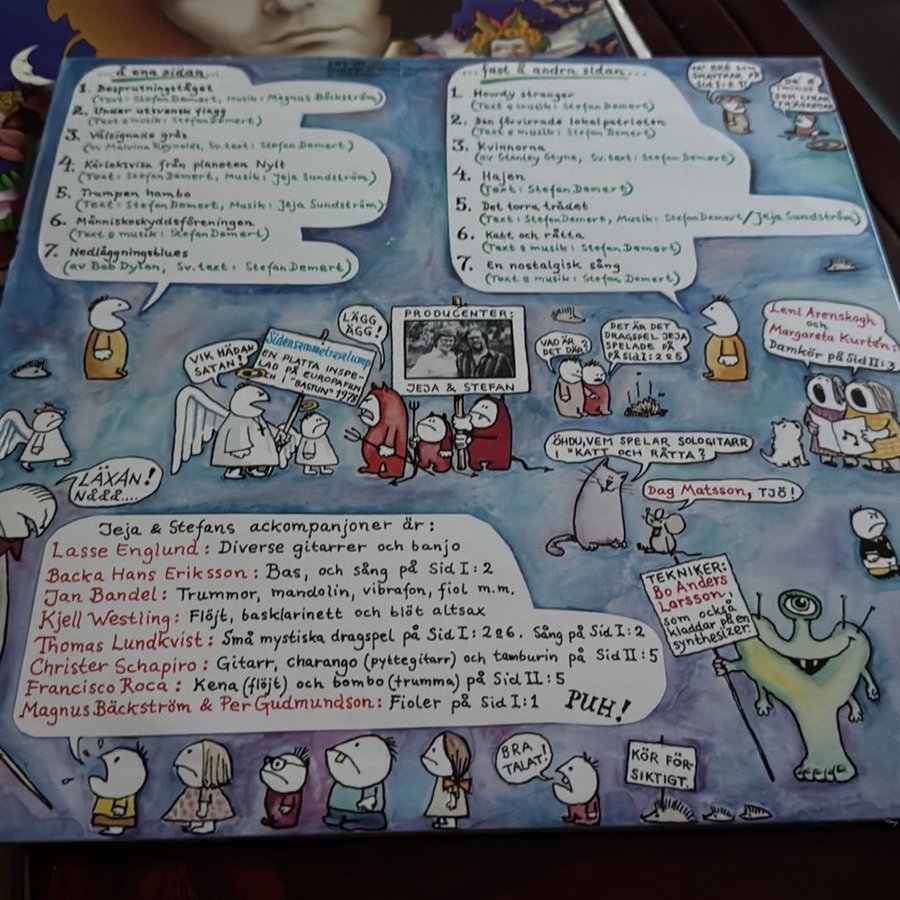 ...å ena sidan...
1. Besprutningståget
(Text: Stefan Demert, Musik: Magnus Bäckström)
2. Under utsvensk flagg
(Text & musik: Stefan Demert)
3. Välsignade gräs
(av Malvina Reynolds, Sv. text: Stefan Demert)
4. Kärleksvisa från planeten Nylt
(Text: Stefan Demert, Musik: Jeja Sundström)
5. Trumpen hambo
(Text: Stefan Demert, Musik: Jeja Sundström)
6. Människoskyddsföreningen
(Text & musik: Stefan Demert)
7. Nedläggningsblues
(av Bob Dylan, Sv. text: Stefan Demert)
...fast å andra sidan...
1. Howdy stranger
(Text & musik: Stefan Demert)
2. Den förvirrade lokalpatrioten
(Text & musik: Stefan Demert)
3. Kvinnorna
(av Stanley Styne, Sv. text: Stefan Demert)
4. Hajen
(Text: Stefan Demert)
5. Det torra trädet
(Text: Stefan Demert, Musik: Stefan Demert/Jeja Sundström)
6. Katt och råtta
(Text & musik: Stefan Demert)
7. En nostalgisk sång
(Text & musik: Stefan Demert)
SOM
SMATTRAR PÅ
SID I:2
DE Ä
THOMAS
SOM LIRAR
VIK HÄDAN
SATAN!
Sidensammetreselump
EN PLATTA INSPE-
LAD PÅ EUROPAFILM
OCH I "BASTUN" 1978
LÄGG
ÄGG!
PRODUCENTER:
JEJA & STEFAN
VAD ÄR
DET DÄR?
DET ÄR DET
DRAGSPEL JEJA
SPELADE PÅ
PÅ Sid I: 2 & 5
Leni Arenskogh
och
Margareta Kurtén:
Damkör på Sid II:3
LÄXAN!
NÅÅÅ....
ÖHDU, VEM SPELAR SOLOGITARR
I "KATT OCH RÅTTA?
Dag Matsson, TJÖ!
Jeja & Stefans ackompanjoner är:
Lasse Englund: Diverse gitarrer och banjo
Backa Hans Eriksson: Bas, och sång på Sid I:2
Jan Bandel: Trummor, mandolin, vibrafon, fiol m.m.
Kjell Westling: Flöjt, basklarinett och blöt altsax
Thomas Lundkvist: Små mystiska dragspel på Sid I: 2&6. Sång på Sid I:2
Christer Schapiro: Gitarr, charango (pyttegitarr) och tamburin på Sid II:5
Francisco Roca: Kena (flöjt) och bombo (trumma) på Sid II:5
Magnus Bäckström & Per Gudmundson: Fioler på Sid I:1
PUH!
TEKNIKER:
Bo Anders
Larsson,
som också
kladdar på en
synthesizer.
BRA
TALAT!
KÖR FÖR-
SIKTIGT.